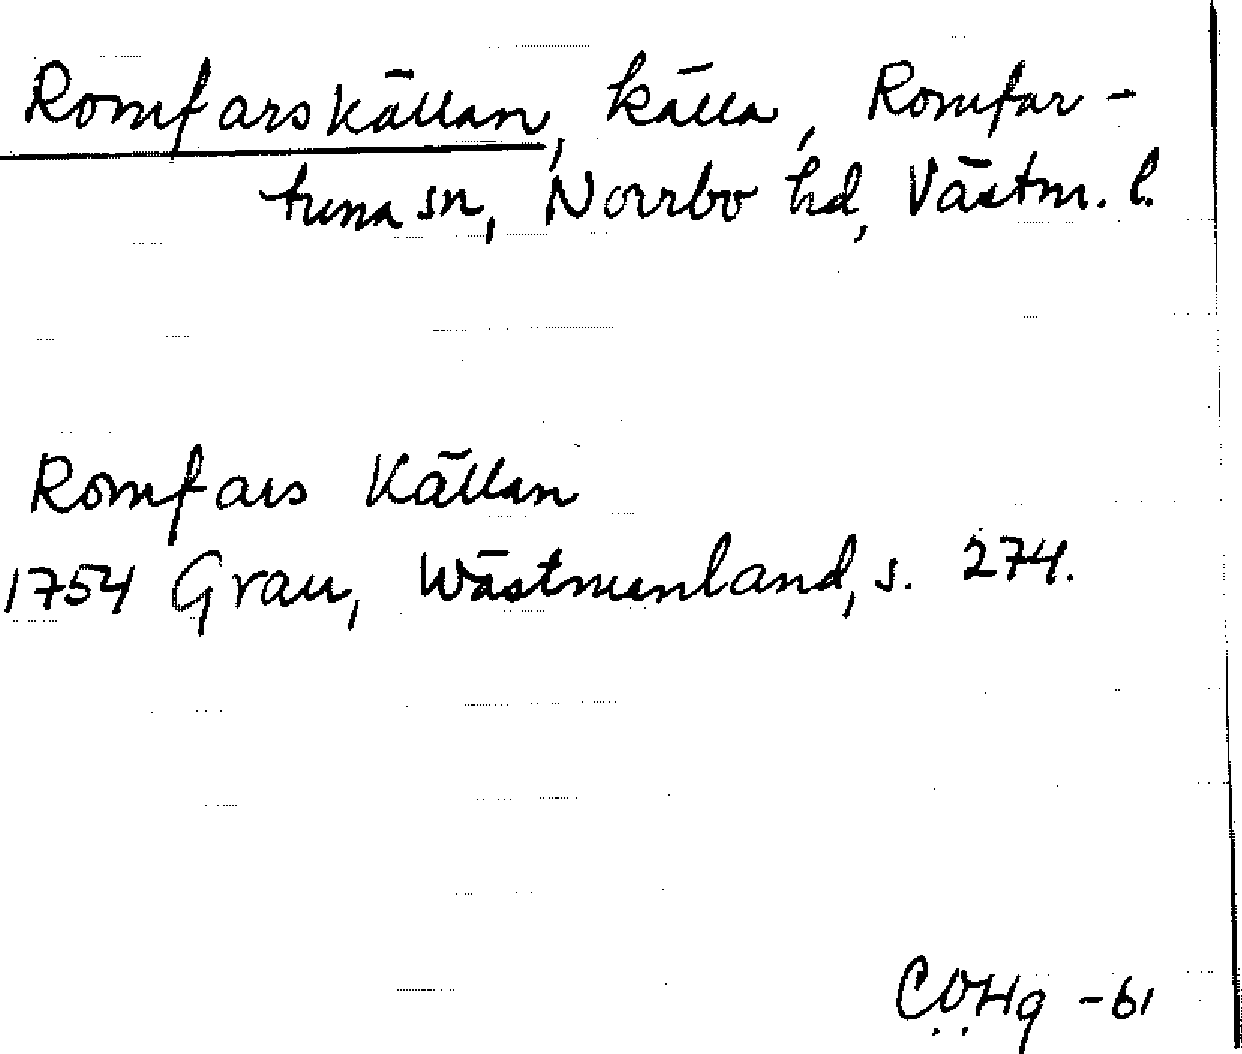 Romfarskällan, källa, Romfar-
tuna sn, Norrbo hd, Västm. l.
Romfars Källan
1754 Grau, Wästmanland, s. 274.
COHg -61